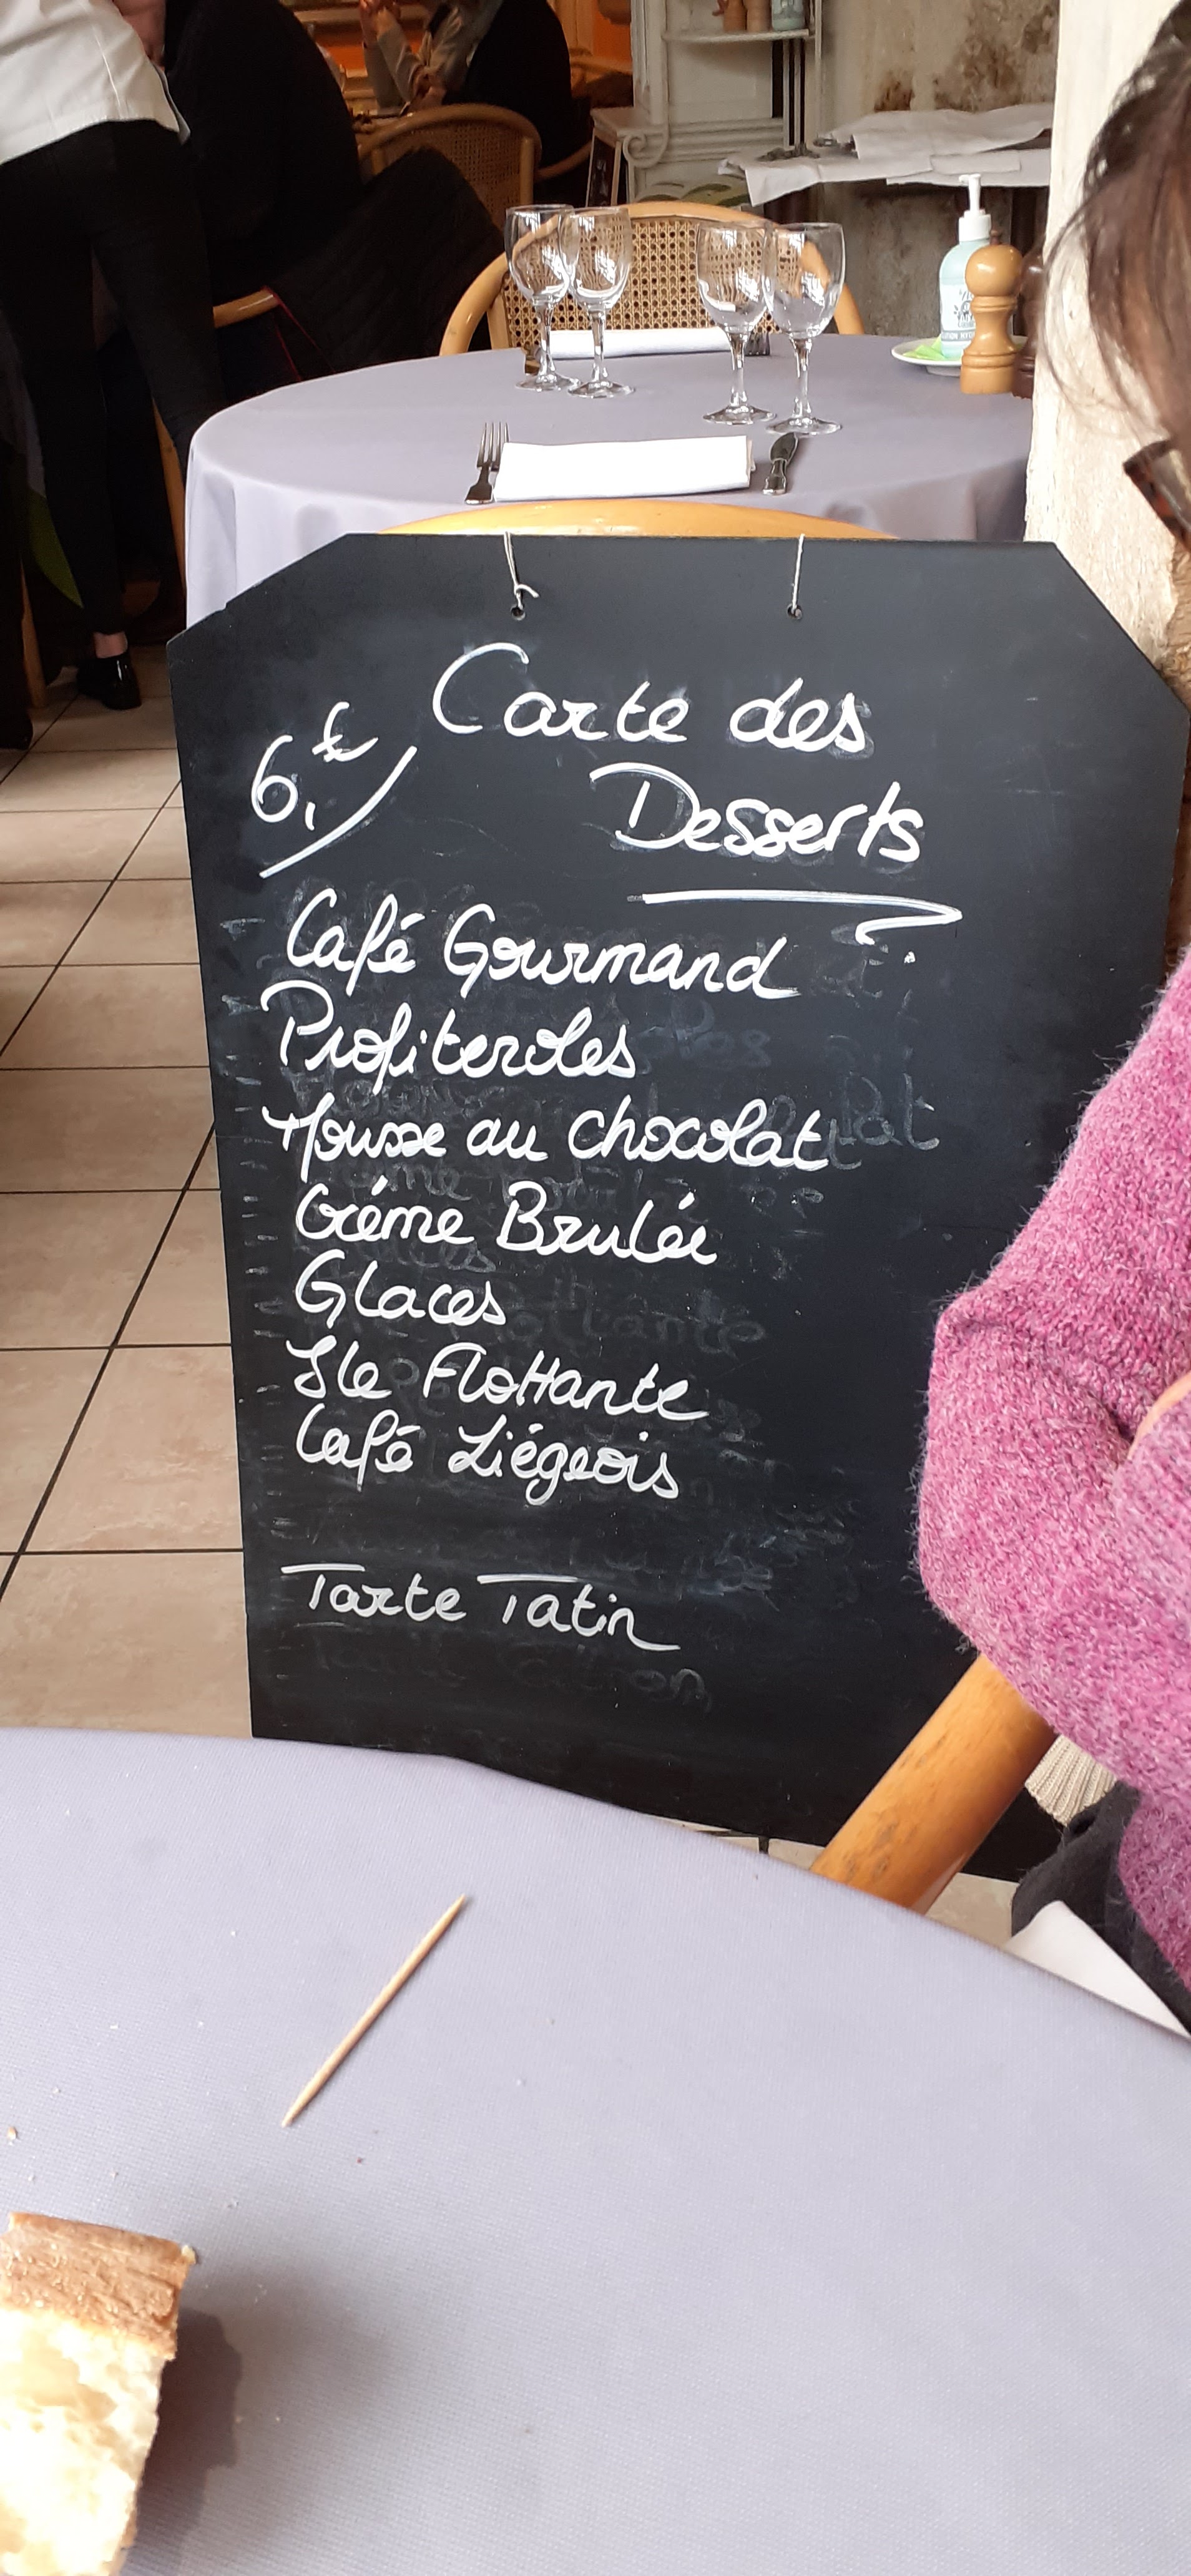 Carte des
6,€
Desserts
Café Gourmand
Profiteroles
Mousse au chocolat
Créme Brulée
Glaces
Ile Flottante
Café Liégeois
Tarte Tatin